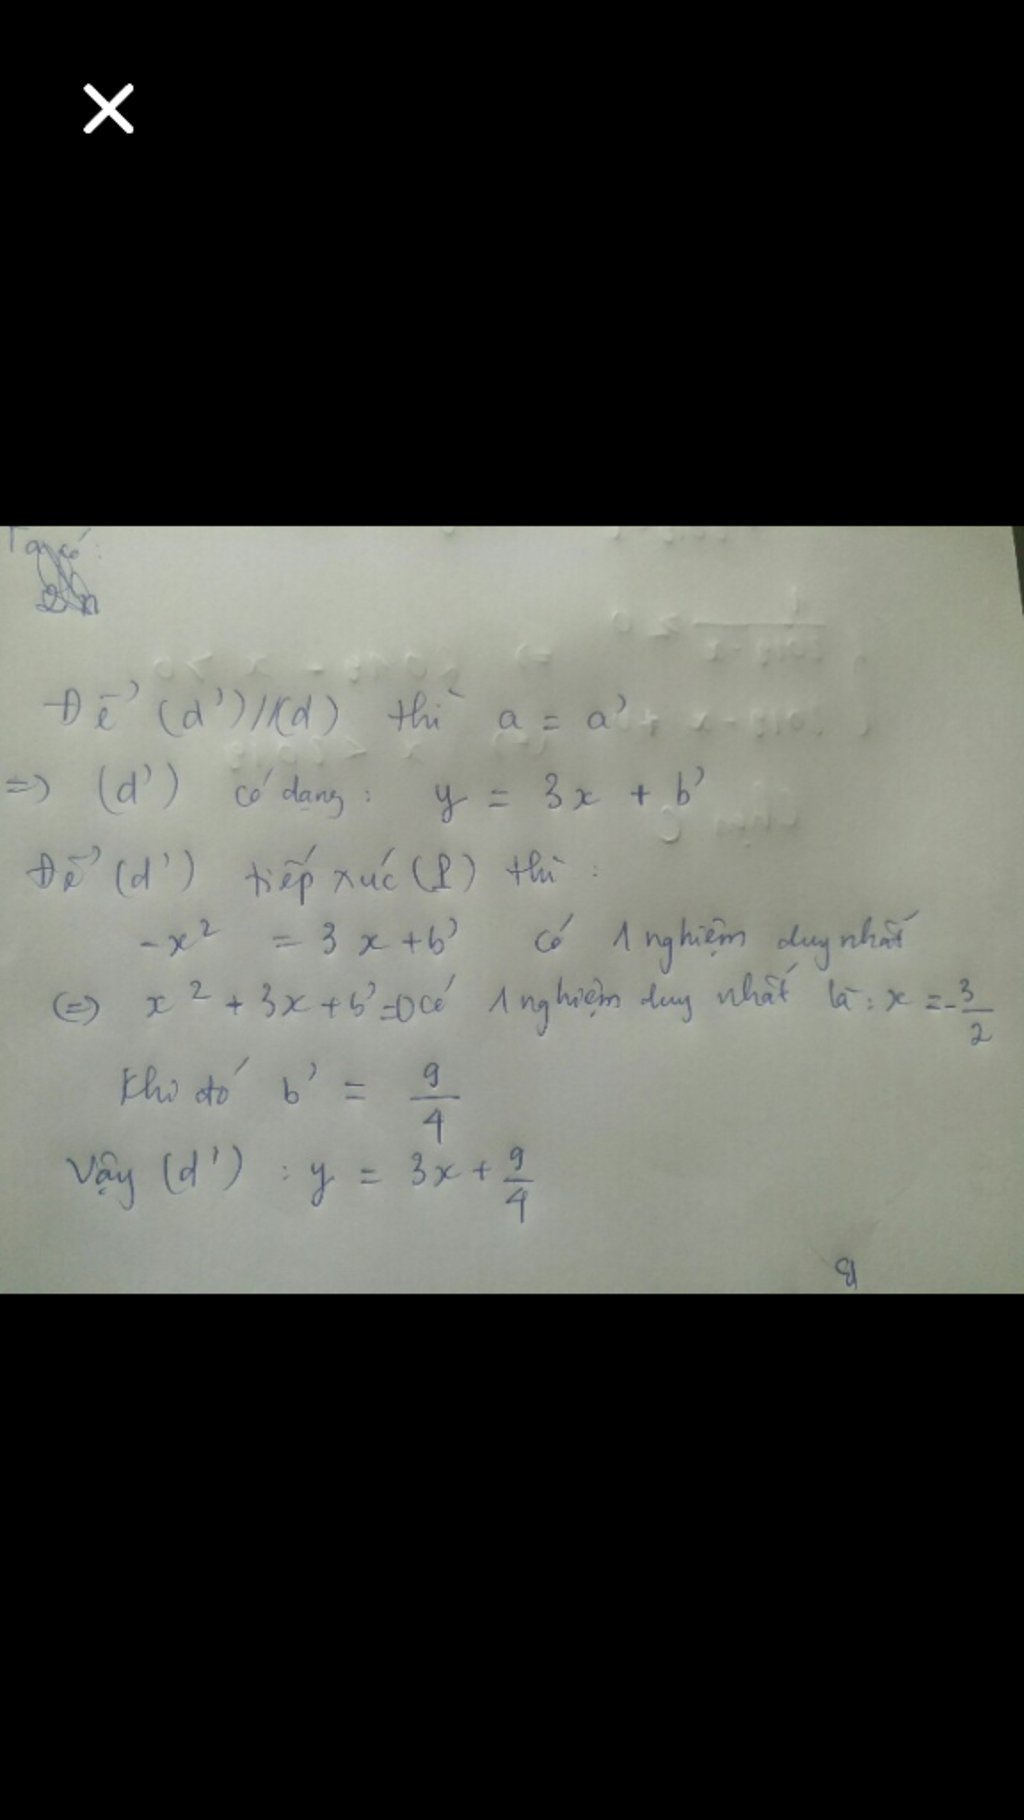 Ta có:
Để (d')//(d) thì a = a'
=> (d') có dạng: y = 3x + b'
Để (d') tiếp xúc (P) thì:
-x² = 3x + b' có 1 nghiệm duy nhất
(=) x² + 3x + b' = 0 có 1 nghiệm duy nhất là: x = -3/2
Khi đó b' = 9/4
Vậy (d') : y = 3x + 9/4